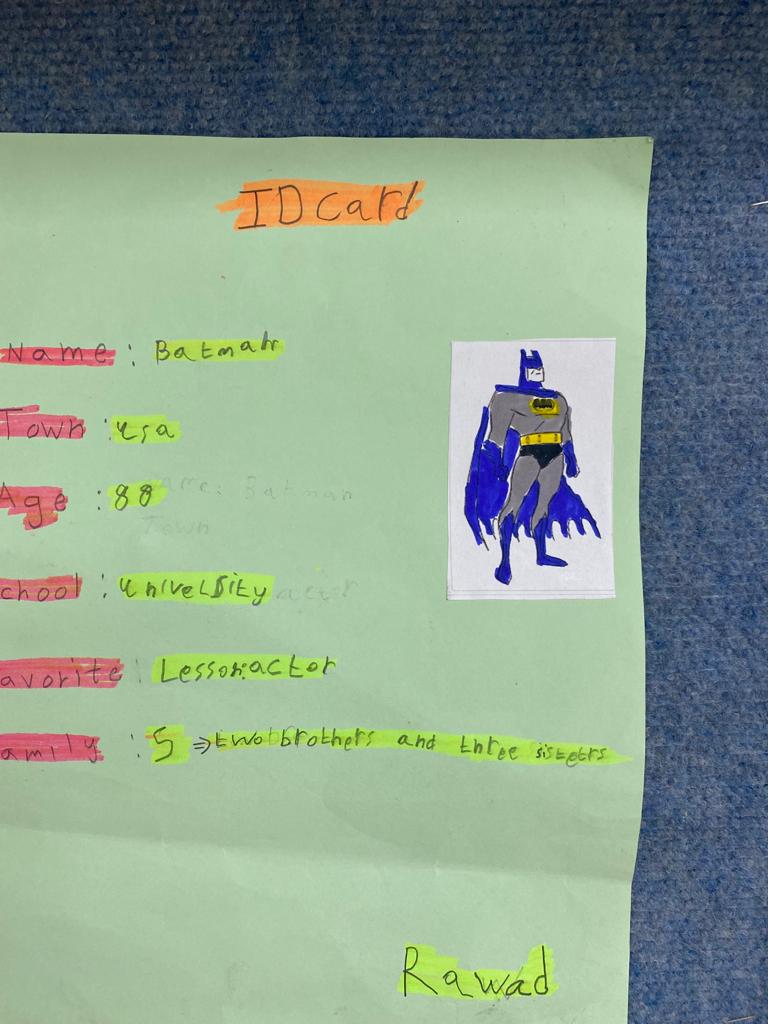 ID card
Name : Batman
Town : usa
Age : 88
ame: Batman
Town
chool : University
actor
avorite Lesson:actor
amily : 5 ⇒ two brothers and three sisters
Rawad